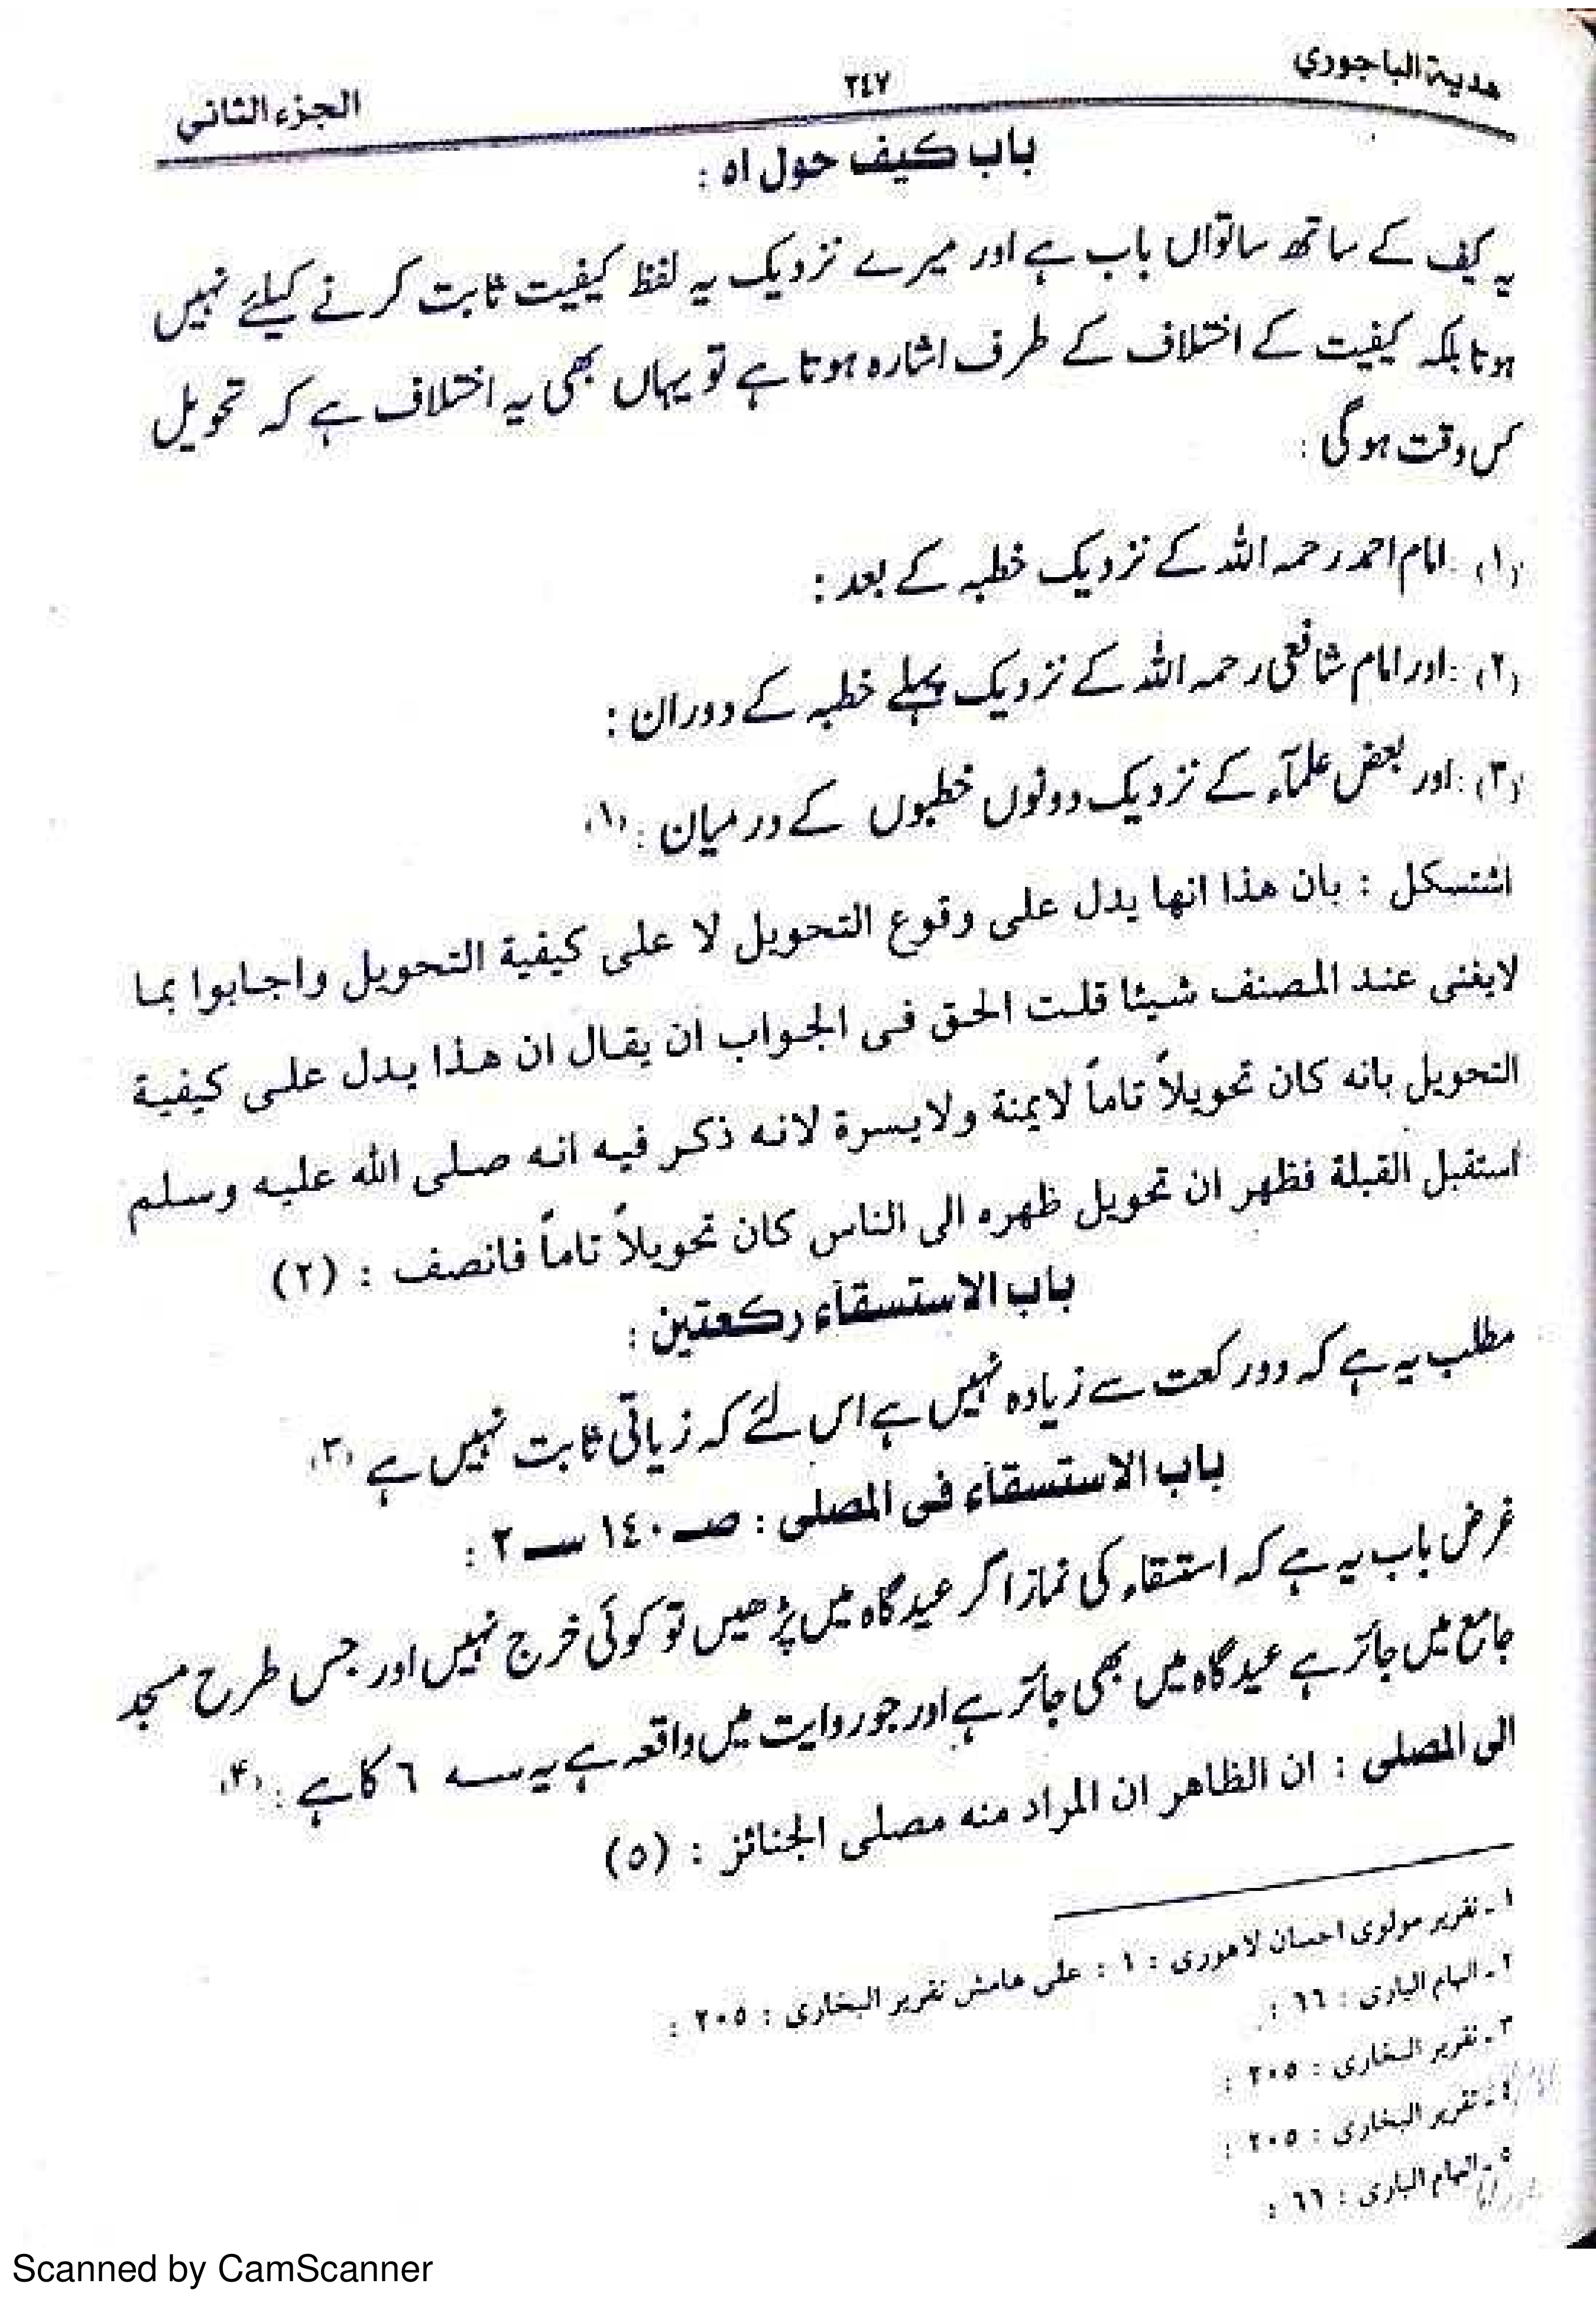 هدية الباجوري
٢٤٧
الجزء الثاني
باب كيف حول اه :
یہ کیف کے ساتھ ساتواں باب ہے اور میرے نزدیک یہ لفظ کیفیت ثابت کرنے کیلئے نہیں
ہوتا بلکہ کیفیت کے اختلاف کے طرف اشارہ ہوتا ہے تو یہاں بھی یہ اختلاف ہے کہ تحویل
کس وقت ہوگی :
(١) : امام احمد رحمہ اللہ کے نزدیک خطبہ کے بعد :
(٢) : اور امام شافعی رحمہ اللہ کے نزدیک پہلے خطبہ کے دوران :
(٣) : اور بعض علمآء کے نزدیک دونوں خطبوں کے درمیان : (١)
اشتسكل : بان هذا انها يدل على وقوع التحويل لا على كيفية التحويل واجابوا بما
لايغنى عند المصنف شيئا قلت الحق فى الجواب ان يقال ان هذا يدل على كيفية
التحويل بانه كان تحويلاً تاماً لايمنة ولايسرة لانه ذكر فيه انه صلى الله عليه وسلم
استقبل القبلة فظهر ان تحويل ظهره الى الناس كان تحويلاً تاماً فانصف : (٢)
باب الاستسقآء ركعتين :
مطلب یہ ہے کہ دو رکعت سے زیادہ نہیں ہے اس لئے کہ زیاتی ثابت نہیں ہے (٣)
باب الاستسقآء فى المصلى : صـ ١٤٠ سـ ٢ :
غرض باب یہ ہے کہ استقاء کی نماز اگر عید گاہ میں پڑھیں تو کوئی خرج نہیں اور جس طرح مسجد
جامع میں جائز ہے عید گاہ میں بھی جائز ہے اور جو روایت میں واقعہ ہے یہ سہ ٦ کا ہے : (۴)
الى المصلى : ان الظاهر ان المراد منه مصلى الجنائز : (٥)
١ ـ تقرير مولوى احسان لاهورى : ١ : على هامش تقرير البخارى : ٢٠٥ :
٢ ـ الهام البارى : ٦٦ :
٣ ـ تقرير البخارى : ٢٠٥ :
٤ ـ تقرير البخارى : ٢٠٥ :
٥ ـ الهام البارى : ٦٦ :
Scanned by CamScanner